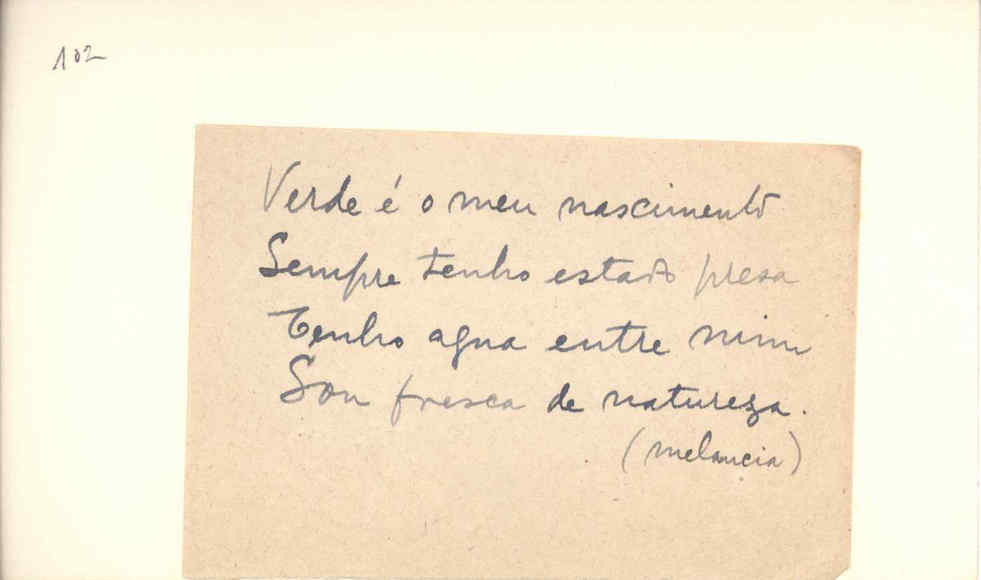 102
Verde é o meu nascimento
Sempre tenho estado presa
Tenho agua entre mim
Sou fresca de natureza.
(melancia)